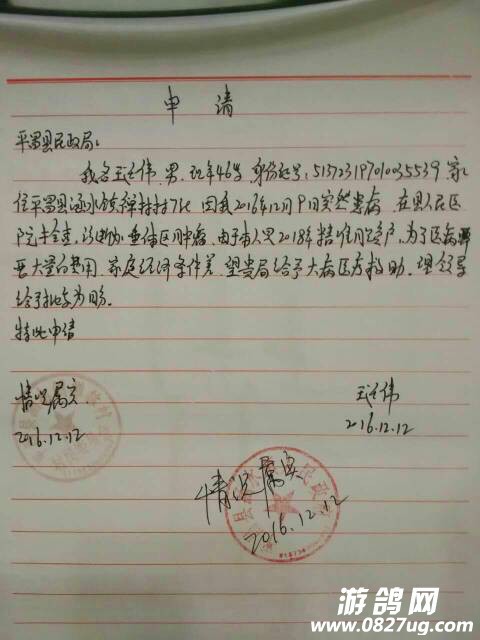 申 请
平昌县民政局:
我名王仕伟,男,现年46岁,身份证号:513723197010035539 家
住平昌县涵水镇禅村村7社 因我2016年12月9日突然患病 在县人民医
院检查,诊断为垂体区肿瘤,由于本人是2018年精准脱贫户,为了医病
要大量的费用 家庭经济条件差 望贵局给予大病医疗救助。望领导
给予批示为盼。
特此申请
情况属实. 王仕伟
2016.12.12 2016.12.12
情况属实
2016.12.12
游鸽网
www.0827ug.com